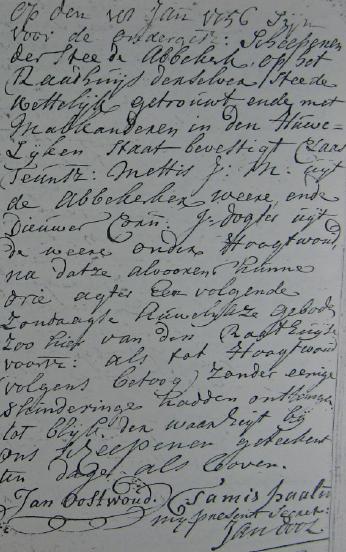 Op den 18 Jan 1756 Zijn
voor de ondergets: Scheepenen
der Stee de Abbekerk op het
Raadhuijs denselver Steede
wettelijk getrouwt ende met
Malkanderen in den Huwe-
Lijken Staat bevestigt Claas
Teuntz: Mettis J: M: uijt
de Abbekerker weere ende
Dieuwer Corn: J: dogter uijt
de weere onder Hoogtwoud
na datze alvooren hunne
drie agter Een volgende
Zondaagse Huwelijkze geboden
Zoo hier van den Raathuijse
voorsz: als tot Hoogtwoud
volgens betoog Zonder eenige
Shinderinge hadden ontfangen
tot blijk der waarheijt bij
ons Scheepenen geteekent
ten dage als boven.
Jan Oostwoud. Tamis
mij present Secret:
Jan